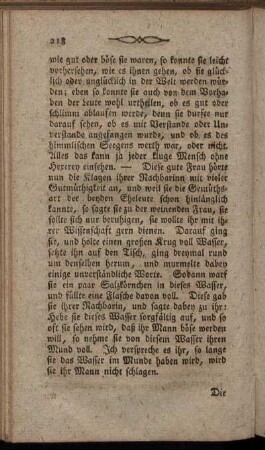 218
wie gut oder böse sie waren, so konnte sie leicht
vorhersehen, wie es ihnen gehen, ob sie glück-
lich oder unglücklich in der Welt werden wür-
den; eben so konnte sie auch von dem Vorha-
ben der Leute wohl urtheilen, ob es gut oder
schlimm ablaufen werde, denn sie durfte nur
darauf sehen, ob es mit Verstande oder Un-
verstande angefangen wurde, und ob es des
himmlischen Seegens werth war, oder nicht.
Alles das kann ja jeder kluge Mensch ohne
Hexerey einsehen. — Diese gute Frau hörte
nun die Klagen ihrer Nachbarinn mit vieler
Gutmüthigkeit an, und weil sie die Gemüths-
art der beyden Eheleute schon hinlänglich
kannte, so sagte sie zu der weinenden Frau, sie
sollte sich nur beruhigen, sie wollte ihr mit ih-
rer Wissenschaft gern dienen. Darauf ging
sie, und holte einen großen Krug voll Wasser,
setzte ihn auf den Tisch, ging dreymal rund
um denselben herum, und murmelte dabey
einige unverständliche Worte. Sodann warf
sie ein paar Salzkörnchen in dieses Wasser,
und füllte eine Flasche davon voll. Diese gab
sie ihrer Nachbarin, und sagte dabey zu ihr:
Hebe sie dieses Wasser sorgfältig auf, und so
oft sie sehen wird, daß ihr Mann böse werden
will, so nehme sie von diesem Wasser ihren
Mund voll. Ich verspreche es ihr, so lange
sie das Wasser im Munde haben wird, wird
sie ihr Mann nicht schlagen.
Die